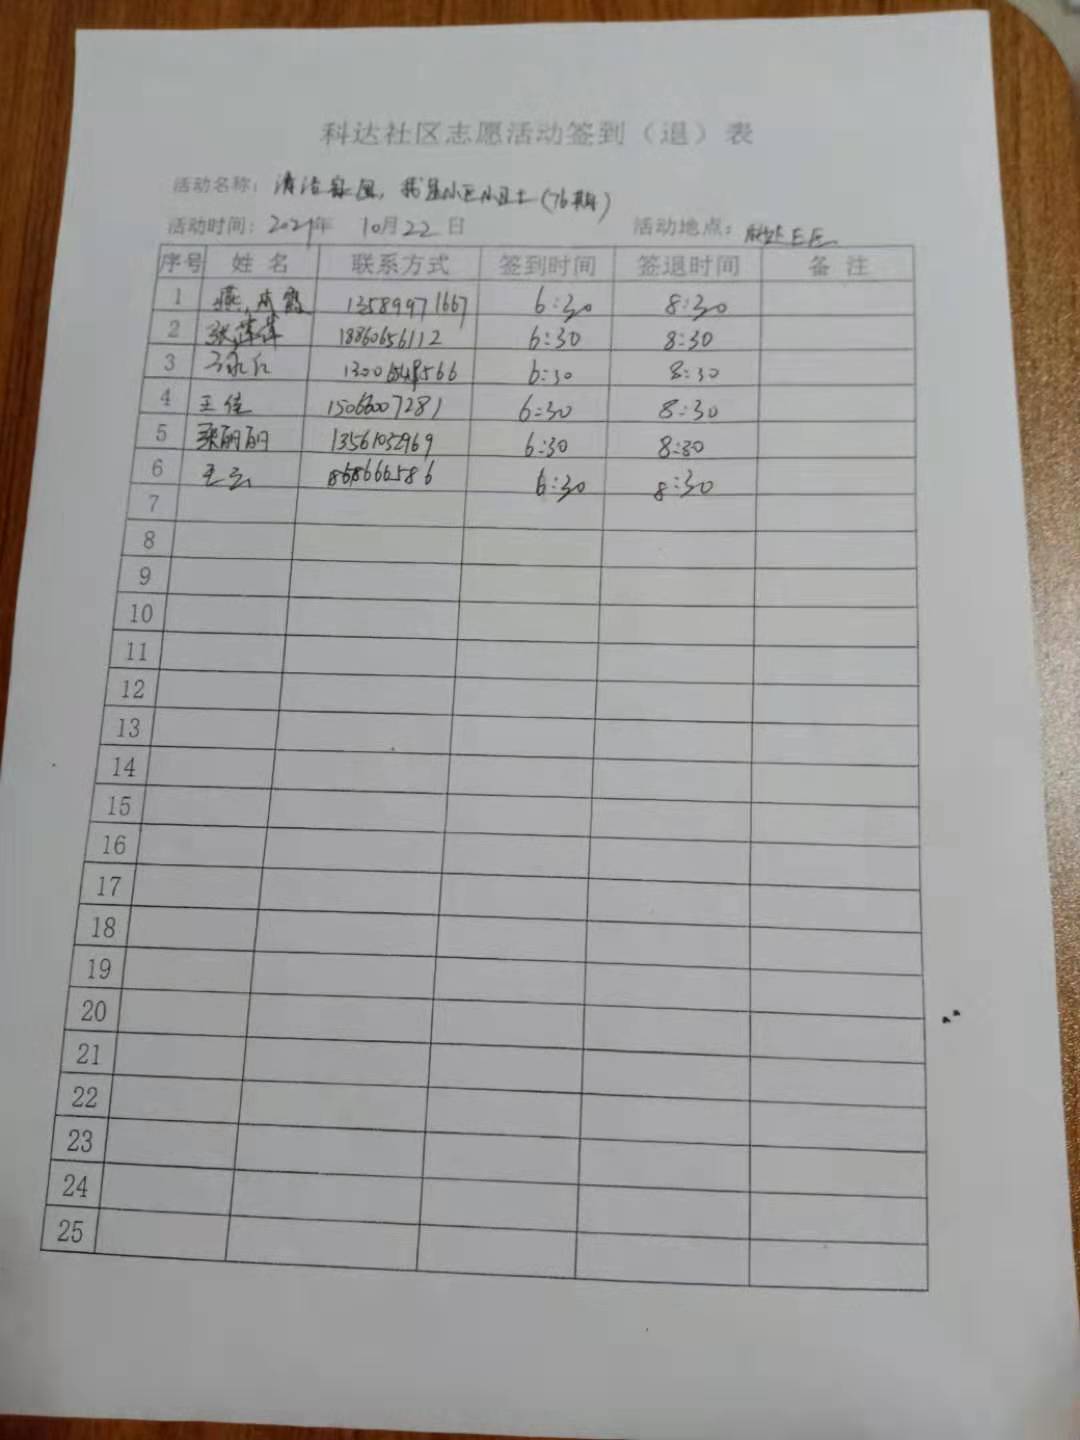 科达社区志愿活动签到（退）表
活动名称：清洁家园，我是小区小卫士（76期）
活动时间：2021年 10月22日 活动地点：
序号 姓名 联系方式 签到时间 签退时间 备注
1 燕 霞 13589971667 6:30 8:30
2 张萍萍 18860656112 6:30 8:30
3 6:30 8:30
4 王佳 15066007281 6:30 8:30
5 梁丽丽 13561032969 6:30 8:30
6 王云 6:30 8:30
7
8
9
10
11
12
13
14
15
16
17
18
19
20
21
22
23
24
25